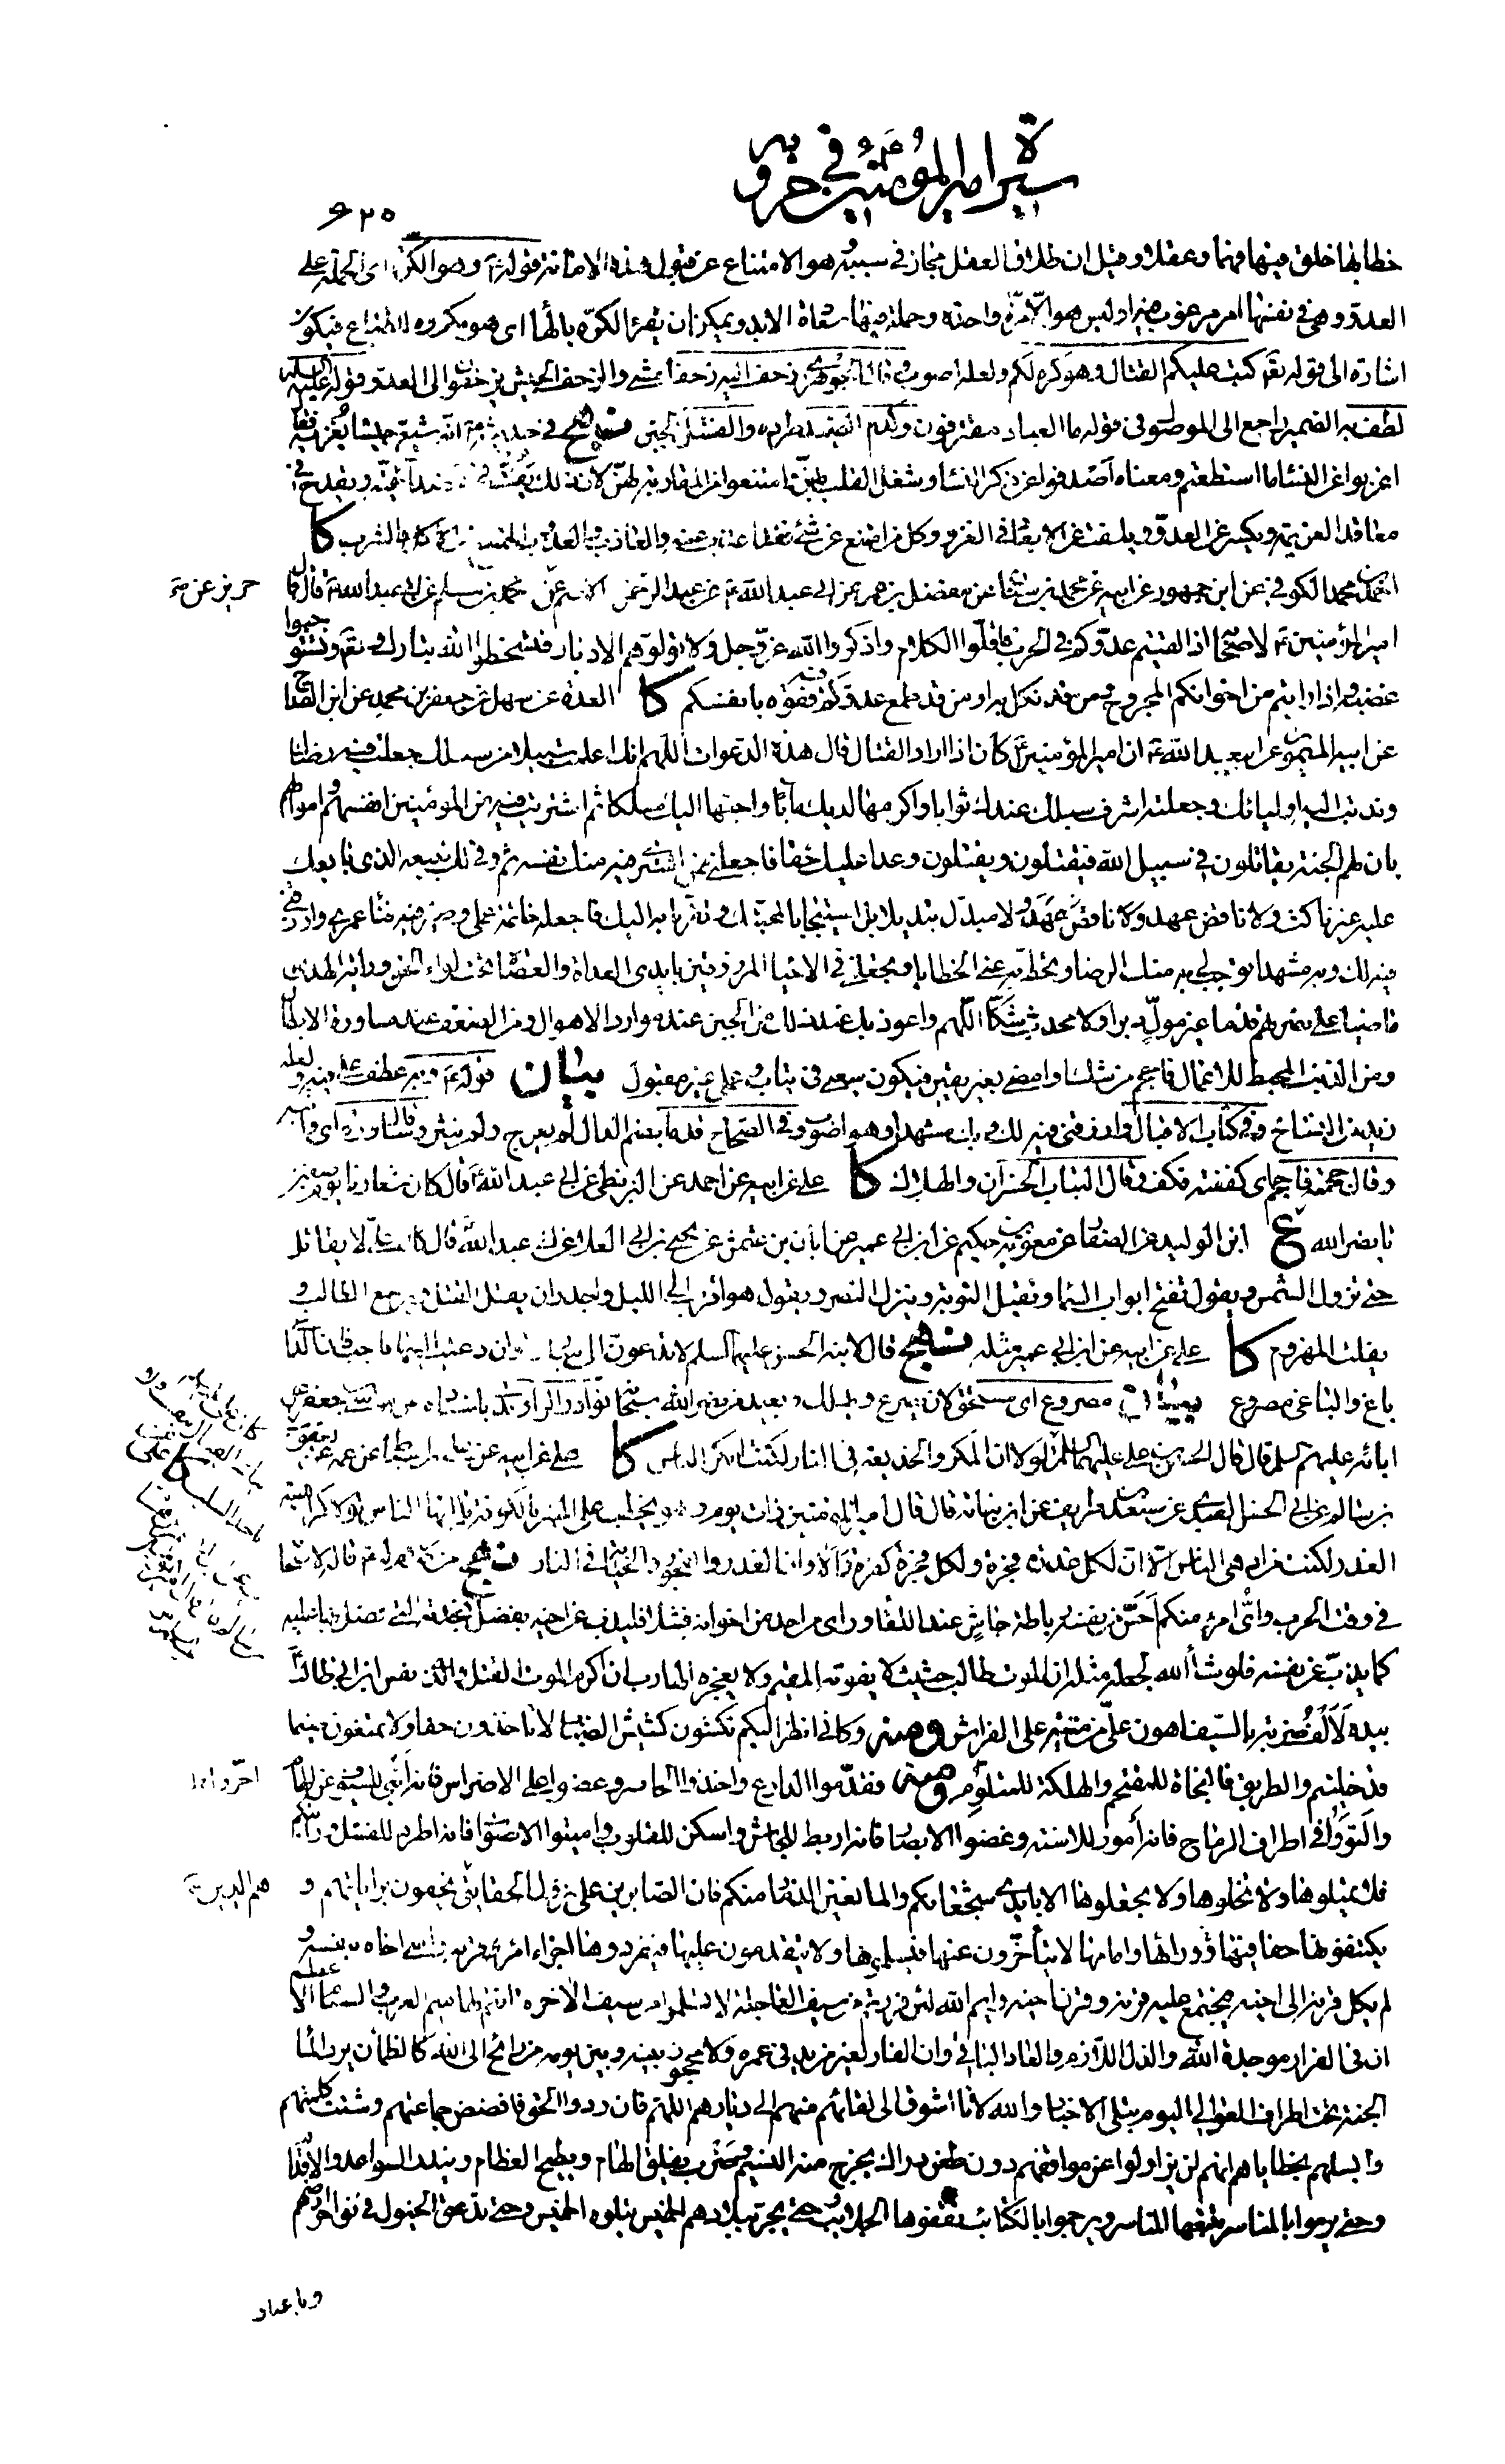 سيرة امير المؤمنين في حروبه
٦٢٥
خطابها خلق فيها فهما وعقلا وقيل ان اطلاق العقل مجاز في سببه هو الامتناع عن قبول هذه الامانة قوله وهو الكر اى الحملة على
العدو وهى فى نفسها امر مرغوب فيه اذ ليس هو الا مرة واحدة وحملة فيها سعادة الابد ويمكن ان يقرأ الكره بالهاء اى هو مكروه للطباع فيكون
اشارة الى قوله تعه كتب عليكم القتال وهو كره لكم ولعله اصوب وقال الجوهرى زحف اليه زحفا مشى والزحف الجيش يزحفون الى العدو قوله عليه السلم
لطف به الضمير راجع الى الموصول فى قوله ما العباد مقترفون والفشل الجبن نهج فى حديثه انه شيع جيشا يغزيه فقال
اعزبوا عن النساء ما استطعتم ومعناه اصدفوا عن ذكر النساء وشغل القلب بهن وامتنعوا من المقاربة لهن لان ذلك يفت فى عضد الحمية ويقدح فى
معاقد العزيمة ويكسر عن العدو ويلفت عن الابعاد فى الغزو وكل من امتنع عن شئ فقد اعزب عنه والعازب والعذوب الممتنع من الاكل والشرب كا
احمد بن محمد الكوفى عن ابن جمهور عن ابيه عن محمد بن سنان عن مفضل بن عمر عن ابى عبد الله ع وعن عبد الرحمن الاصم عن محمد بن مسلم عن ابى عبد الله ع قال قال
حريز عن صح
امير المؤمنين ع لاصحابه اذا لقيتم عدوكم فى الحرب فاقلوا الكلام واذكروا الله عز وجل ولا تولوهم الادبار فتسخطوا الله تبارك وتعه وتستوجبوا
غضبه واذا رايتم من اخوانكم المجروح ومن قد نكل به او من قد طمع عدوكم فيه فقوه بانفسكم كا العدة عن سهل عن جعفر بن محمد عن ابن القداح
عن ابيه الميمون عن ابى عبد الله ع ان امير المؤمنين ع كان اذا اراد القتال قال هذه الدعوات اللهم انك اعلمت سبيلا من سبلك جعلت فيه رضاك
وندبت اليه اولياءك وجعلته اشرف سبلك عندك ثوابا واكرمها لديك مابا واحبها اليك مسلكا ثم اشتريت فيه من المؤمنين انفسهم واموالهم
بان لهم الجنة يقاتلون فى سبيل الله فيقتلون ويقتلون وعدا عليك حقا فاجعلنى ممن اشترى فيه منك نفسه ثم وفى لك ببيعه الذى بايعك
عليه غير ناكث ولا ناقض عهد ولا مبدل تبديلا بل استيجابا لمحبتك وتقربا به اليك فاجعله خاتمة عملى وصير فيه فناء عمرى وارزقنى
فيه لك وبه مشهدا توجب لى به منك الرضا وتحط به عنى الخطايا وتجعلنى فى الاحياء المرزوقين بايدى العداة والعصاة تحت لواء الحق وراية الهدى
ماضيا على نصرتهم قدما غير مول دبرا ولا محدث شكا اللهم واعوذ بك عند ذلك من الجبن عند موارد الاهوال ومن الضعف عند مساورة الابطال
ومن الذنب المحبط للاعمال فاحجم من شك او امضى بغير يقين فيكون سعيى فى تباب وعملى غير مقبول بيان قوله ع وبه عطف على فيه ولعله
زيد من النساخ وفى كتاب الاقبال وارزقنى فيه لك وبك مشهدا وهو اصوب وفى الصحاح قدما بضم الدال لم يعرج ولم ينثن وقال ساوره اى واثبه
وقال حجمته فاحجم اى كففته فكف وقال التباب الخسران والهلاك كا على عن ابيه عن احمد عن البزنطى عن ابى عبد الله ع قال كان شعارنا يوم صفين
يا نصر الله ع ابن الوليد عن الصفار عن معوية بن حكيم عن ابن ابى عمير عن ابان بن عثمن عن يحيى بن ابى العلا عن ابى عبد الله ع قال كان على ع لا يقاتل
حتى تزول الشمس ويقول تفتح ابواب السماء وتقبل التوبة وينزل النصر ويقول هو اقرب الى الليل واجدر ان يقل القتل ويرجع الطالب و
يفلت المهزوم كا على عن ابيه عن ابن ابى عمير مثله نهج قال لابنه الحسن عليهما السلم لا تدعون الى مبارزة وان دعيت اليها فاجب فان الداعى
باغ والباغى مصروع بيان مصروع اى مستحق لان يصرع
ابائه عليهم السلم قال قال الحسين بن على عليهما السلم لولا ان المكر والخديعة فى النار لكنت امكر الناس كا على عن ابيه عن على بن اسباط عن عمه يعقوب
بن سالم عن ابى الحسن العبدى عن سعد بن طريف عن ابن نباتة قال قال امير المؤمنين ذات يوم وهو يخطب على المنبر بالكوفة يا ايها الناس لولا كراهية
الغدر لكنت من ادهى الناس الا ان لكل غدرة فجرة ولكل فجرة كفرة الا وان الغدر والفجور والخيانة فى النار نهج من كلام له ع قاله لاصحابه
فى وقت الحرب واى امرء منكم احس من نفسه رباطة جاش عند اللقاء وراى من احد من اخوانه فشلا فليذب عن اخيه بفضل نجدته التى فضل بها عليه
كما يذب عن نفسه فلو شاء الله لجعله مثله ان الموت طالب حثيث لا يفوته المقيم ولا يعجزه الهارب ان اكرم الموت القتل والذى نفس ابن ابى طالب
بيده لالف ضربة بالسيف اهون على من ميتة على الفراش ومنه وكانى انظر اليكم تكشون كشيش الضباب لا تاخذون حقا ولا تمنعون ضيما
قد خليتم والطريق فالنجاة للمقتحم والهلكة للمتلوم ومنه فقدموا الدارع واخروا الحاسر وعضوا على الاضراس فانه انبى للسيوف عن الهام
اخروا
والتووا فى اطراف الرماح فانه امور للاسنة وغضوا الابصار فانه اربط للجاش واسكن للقلوب واميتوا الاصوات فانه اطرد للفشل ورايتكم
فلا تميلوها ولا تخلوها ولا تجعلوها الا بايدى شجعانكم والمانعين الذمار منكم فان الصابرين على نزول الحقايق يحفون براياتهم و
هم الذين صح
يكتنفونها حفافيها ووراءها وامامها لا يتاخرون عنها فيسلموها ولا يتقدمون عليها فيفردوها اجزا امرء قرنه واسى اخاه بنفسه و
لم يكل قرنه الى اخيه فيجتمع عليه قرنه وقرن اخيه وايم الله لئن فررتم من سيف العاجلة لا تسلموا من سيف الاخرة انتم لهاميم العرب والسنام الاعظم
ان فى الفرار موجدة الله والذل اللازم والعار الباقى وان الفار لغير مزيد فى عمره ولا محجوز بينه وبين يومه من رائح الى الله كالظمآن يرد الماء
الجنة تحت اطراف العوالى اليوم تبلى الاخبار والله لانا اشوق الى لقائهم منهم الى ديارهم اللهم فان ردوا الحق فافضض جماعتهم وشتت كلمتهم
وابسلهم بخطاياهم انهم لن يزولوا عن مواقفهم دون طعن دراك يخرج منه النسيم وضرب يفلق الهام ويطيح العظام ويندر السواعد والاقدام
وحتى يرموا بالمناسر تتبعها المناسر ويرجموا بالكتائب تقفوها الحلائب حتى يجر ببلادهم الخميس يتلوه الخميس وحتى تدعق الخيول فى نواحر ارضهم
وباعنان